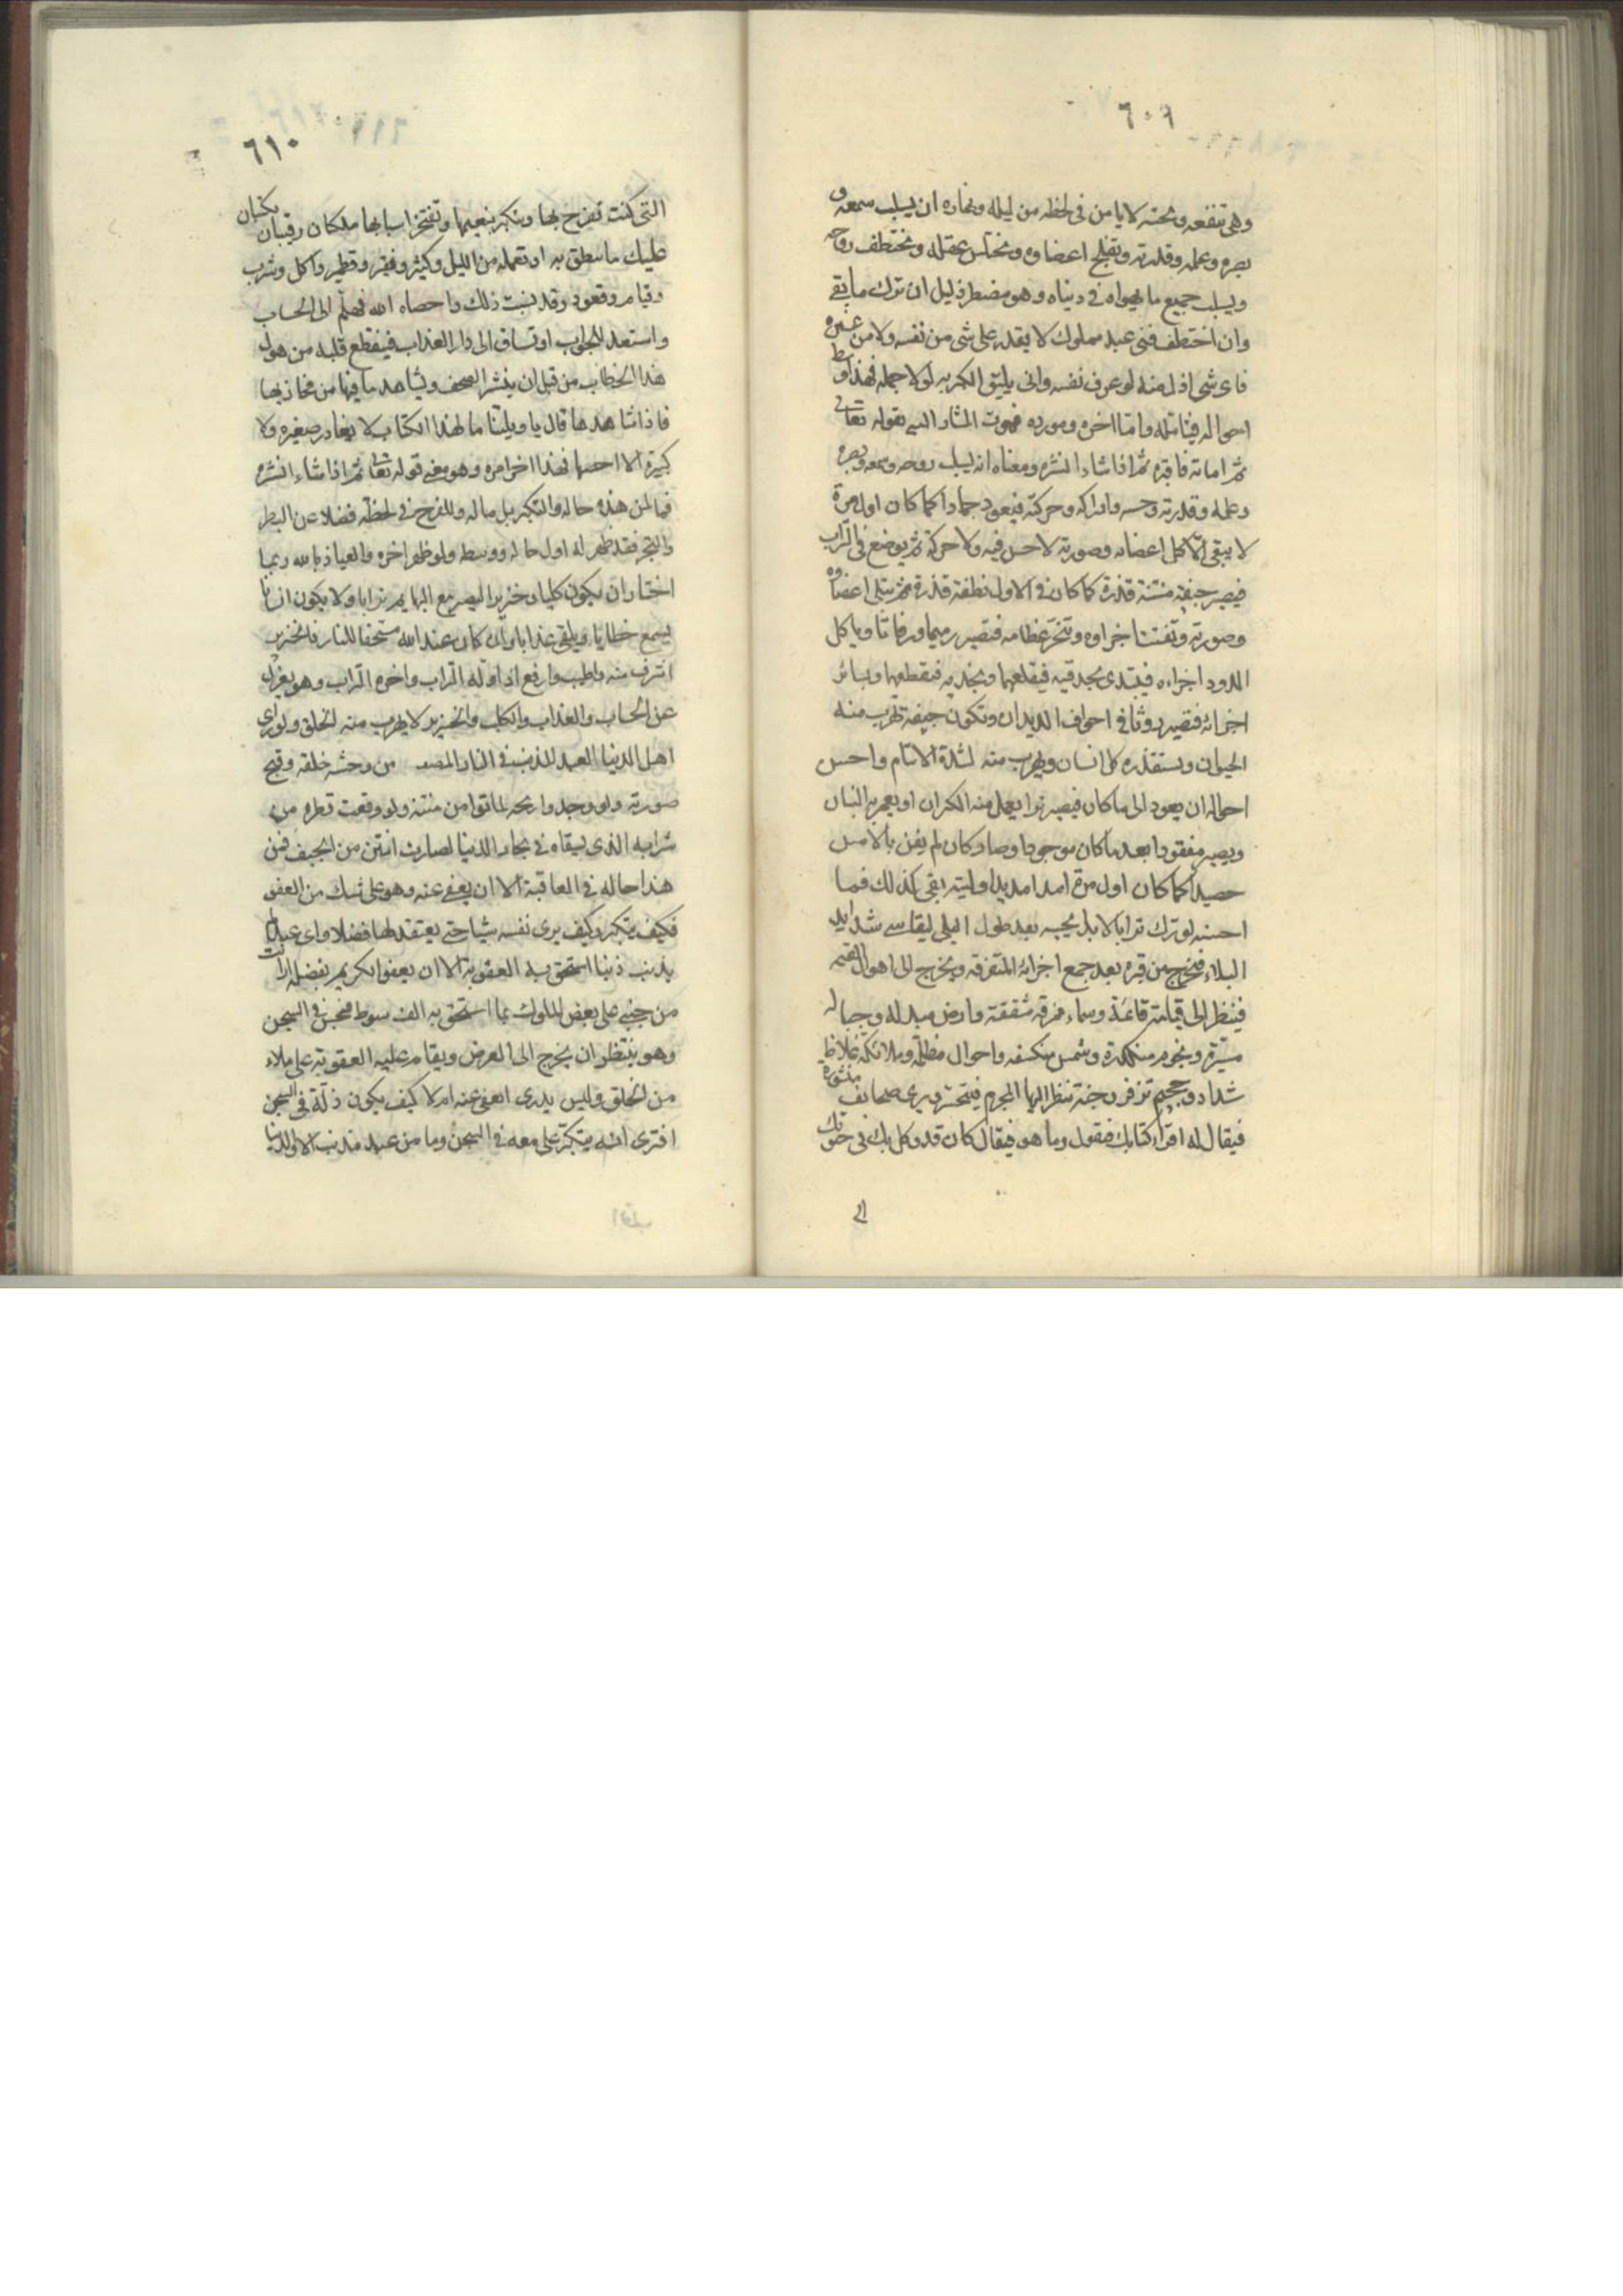 ٦٠٩
وهى تنفعه ومحنته لا يامن فى لحظه من ليله ونهاره ان يسلب سمعه و
بصره وعمله وقدرته وتفلج اعضاوه ويختلس عقله ويختطف روحه
ويسلب جميع ما يهواه فى دنياه وهو مضطر ذليل ان ترك ما بقى
وان اختطف فنى عبد مملوك لا يقدر على شى من نفسه ولا من غيره
فاى شى اذل منه لو عرف نفسه وانى يليق الكبر به لولا جهله فهذا اوسط
احواله فيتامله واما اخره ومورده فهو الموت المشار اليه بقوله تعالى
ثم اماته فاقبره ثم اذا شاء انشره ومعناه انه يسلب روحه وسمعه وبصره
وعمله وقدرته وحسه وادراكه وحركته فيعود جمادا كما كان اول مرة
لا يبقى الا شكل اعضائه وصورته لا حس فيه ولا حركة ثم يوضع فى التراب
فيصير جيفة منتنة قذرة كما كان فى الاول نطفة قذرة ثم تبلى اعضاوه
وصورته وتفتت اجزاوه وتنخر عظامه فتصير رميما ورفاتا وياكل
الدود اجزاءه فيبتدى بحدقيه فيقلعهما وبخديه فيقطعهما وبسائر
اجزائه فتصير روثا فى اجواف الديدان وتكون جيفة تهرب منه
الحيوان ويستقذره كل انسان ويهرب منه لشدة الانتان واحسن
احواله ان يعود الى ما كان فيصير ترابا يعمل منه الكيزان او يعمر به البنيان
ويصير مفقودا بعد ما كان موجودا وصار كان لم يغن بالامس
حصيدا كما كان اول مرة امدا مديدا وليته بقى كذلك فما
احسنه لو ترك ترابا لا بل يحييه بعد طول البلى ليقاسى شدايد
البلاء فيخرج من قبره بعد جمع اجزائه المتفرقه ويخرج الى اهوال القيمه
فينظر الى قيامة قائمة وسماء ممزقه مشققة وارض مبدله وجبال
مسيرة ونجوم منكدرة وشمس منكسفه واحوال مظلمة وملائكة غلاظ
شداد وجحيم تزفر وجنة تنظر اليها المجرم فيتحسر ويرى صحائف منشورة
فيقال له اقرا كتابك فيقول وما هو فيقال كان قد وكل بك فى حيوتك
٦١٠
التى كنت تفرح بها وتتكبر بنعيمها وتفتخر باسبابها ملكان رقيبان يكتبان
عليك ما تنطق به او تعمله من قليل وكثير ونقير وقطمير واكل وشرب
وقيام وقعود وقد نسيت ذلك واحصاه الله فهلم الى الحساب
واستعد للجواب او تساق الى دار العذاب فينقطع قلبه من هول
هذا الخطاب من قبل ان ينشر الصحف ويشاهد ما فيها من مخازيها
فاذا شاهدها قال يا ويلتنا ما لهذا الكتاب لا يغادر صغيره ولا
كبيرة الا احصها فهذا اخر امره وهو معنى قوله تعالى ثم اذا شاء انشره
فما لمن هذه حاله والتكبر بل ما له وللفرح فى لحظة فضلا عن البطر
والتجبر فقد ظهر له اول حاله ووسطه ولو ظهر اخره والعياذ بالله ربما
اختار ان يكون كلبا او خنزيرا ليصير مع البهايم ترابا ولا يكون انسانا
يسمع خطابا ويلقى عذابا وان كان عند الله مستحقا للنار فالخنزير
اشرف منه واطيب وارفع اذ اوله التراب واخره التراب وهو بمعزل
عن الحساب والعذاب والكلب والخنزير لا يهرب منه الخلق ولو راى
اهل الدنيا العبد المذنب فى النار من وحشة خلقه وقبح
صورته ولو وجدوا ريحه لماتوا من منتنه ولو وقعت قطره من
شرابه الذى يسقاه فى بحار الدنيا لصارت انتن من الجيف فمن
هذا حاله فى العاقبة الا ان يعفى عنه وهو على شك من العفو
فكيف يتكبر وكيف يرى نفسه شيئا حتى يعتقد لها فضلا واى عبد لم
يذنب ذنبا استحق به العقوبة الا ان يعفو الكريم بفضله ارايت
من جنى على بعض الملوك بما استحق به الف سوط فحبس فى السجن
وهو ينتظر ان يخرج الى العرض ويقام عليه العقوبة على ملاء
من الخلق وليس يدرى ايعفى عنه ام لا كيف يكون ذلة فى السجن
افترى انه يتكبر على معه فى السجن وما من عبد مذنب الا والدنيا